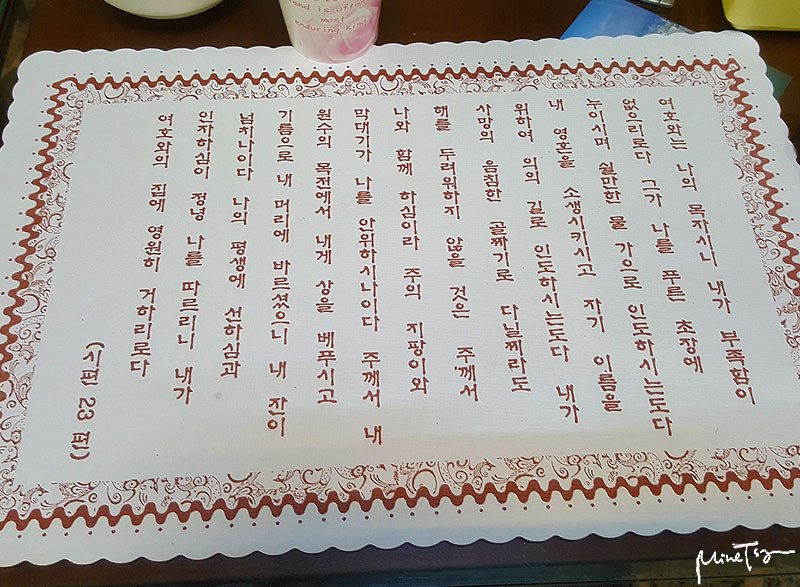 is often
most
enduring
여호와는 나의 목자시니 내가 부족함이
없으리로다 그가 나를 푸른 초장에
누이시며 쉴만한 물 가으로 인도하시는도다
내 영혼을 소생시키시고 자기 이름을
위하여 의의 길로 인도하시는도다 내가
사망의 음침한 골짜기로 다닐찌라도
해를 두려워하지 않을 것은 주께서
나와 함께 하심이라 주의 지팡이와
막대기가 나를 안위하시나이다 주께서 내
원수의 목전에서 내게 상을 베푸시고
기름으로 내 머리에 바르셨으니 내 잔이
넘치나이다 나의 평생에 선하심과
인자하심이 정녕 나를 따르리니 내가
여호와의 집에 영원히 거하리로다
(시편 23 편)